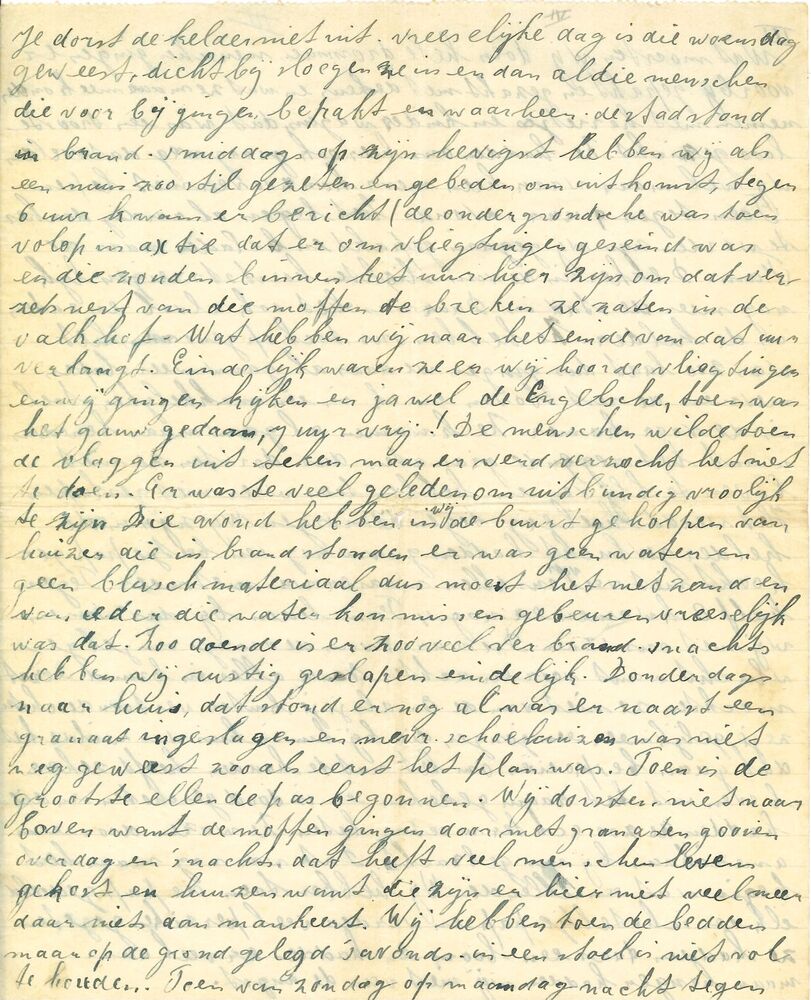 IV
Je dorst de kelder niet uit. vreeselijke dag is die woensdag
geweest, dichtbij sloegen ze in en dan al die menschen
die voor bij gingen, bepakt en waarheen. de stad stond
in brand. smiddags op zijn hevigst hebben wij als
een muis zoo stil gezeten en gebeden om uitkomst, tegen
6 uur kwam er bericht (de ondergrondsche was toen
volop in axtie dat er om vliegtuigen geseind was
en die zouden binnen het uur hier zijn om dat ver-
zets nest van die moffen te breken ze zaten in de
valkhof. Wat hebben wij naar het einde van dat uur
verlangt. Eindelijk waren ze er wij hoorde vliegtuigen
en wij gingen kijken en jawel de Engelsche, toen was
het gauw gedaan, 7 uur vrij! De menschen wilde toen
de vlaggen uit steken maar er werd verzocht het niet
te doen. Er was te veel geleden om uitbundig vroolijk
te zijn Die avond hebben wij in de buurt geholpen van
huizen die in brand stonden er was geen water en
geen bluschmateriaal dus moest het met zand en
van ieder die water kon missen gebeuren vreeselijk
was dat. Zoo doende is er zooveel verbrand. snachts
hebben wij rustig geslapen eindelijk. Donderdags
naar huis, dat stond er nog al was er naast een
granaat ingeslagen en mevr. schoenhuizen was niet
weg geweest zooals eerst het plan was. Toen is de
grootste ellende pas begonnen. Wij dorsten niet naar
boven want de moffen gingen door met granaten gooien
overdag en 'snachts, dat heeft veel menschen levens
gekost en huizen want die zijn er hier niet veel meer
daar niet aan mankeert. Wij hebben toen de bedden
maar op de grond gelegd 'savonds. in een stoel is niet vol
te houden. Toen van zondag op maandag nacht tegen